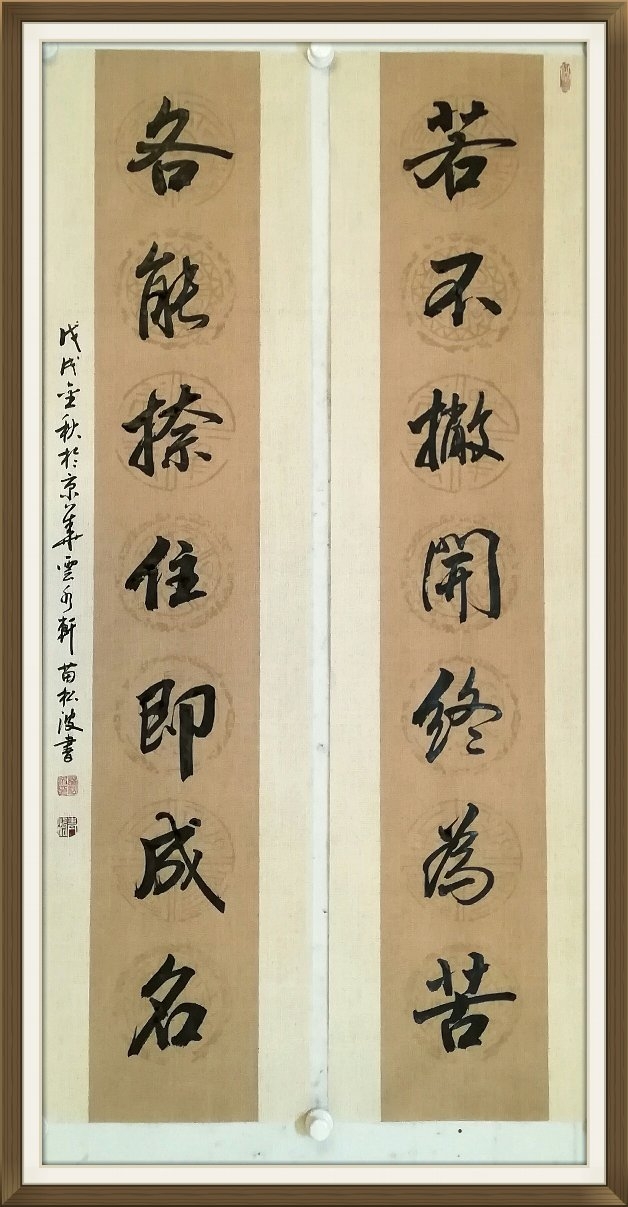 若不撇開終為苦
各能捺住即成名
戊戌金秋於京華雲水軒苗松波書